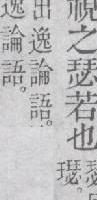 視之瑟若也
璱。
出逸論語。
逸論語。